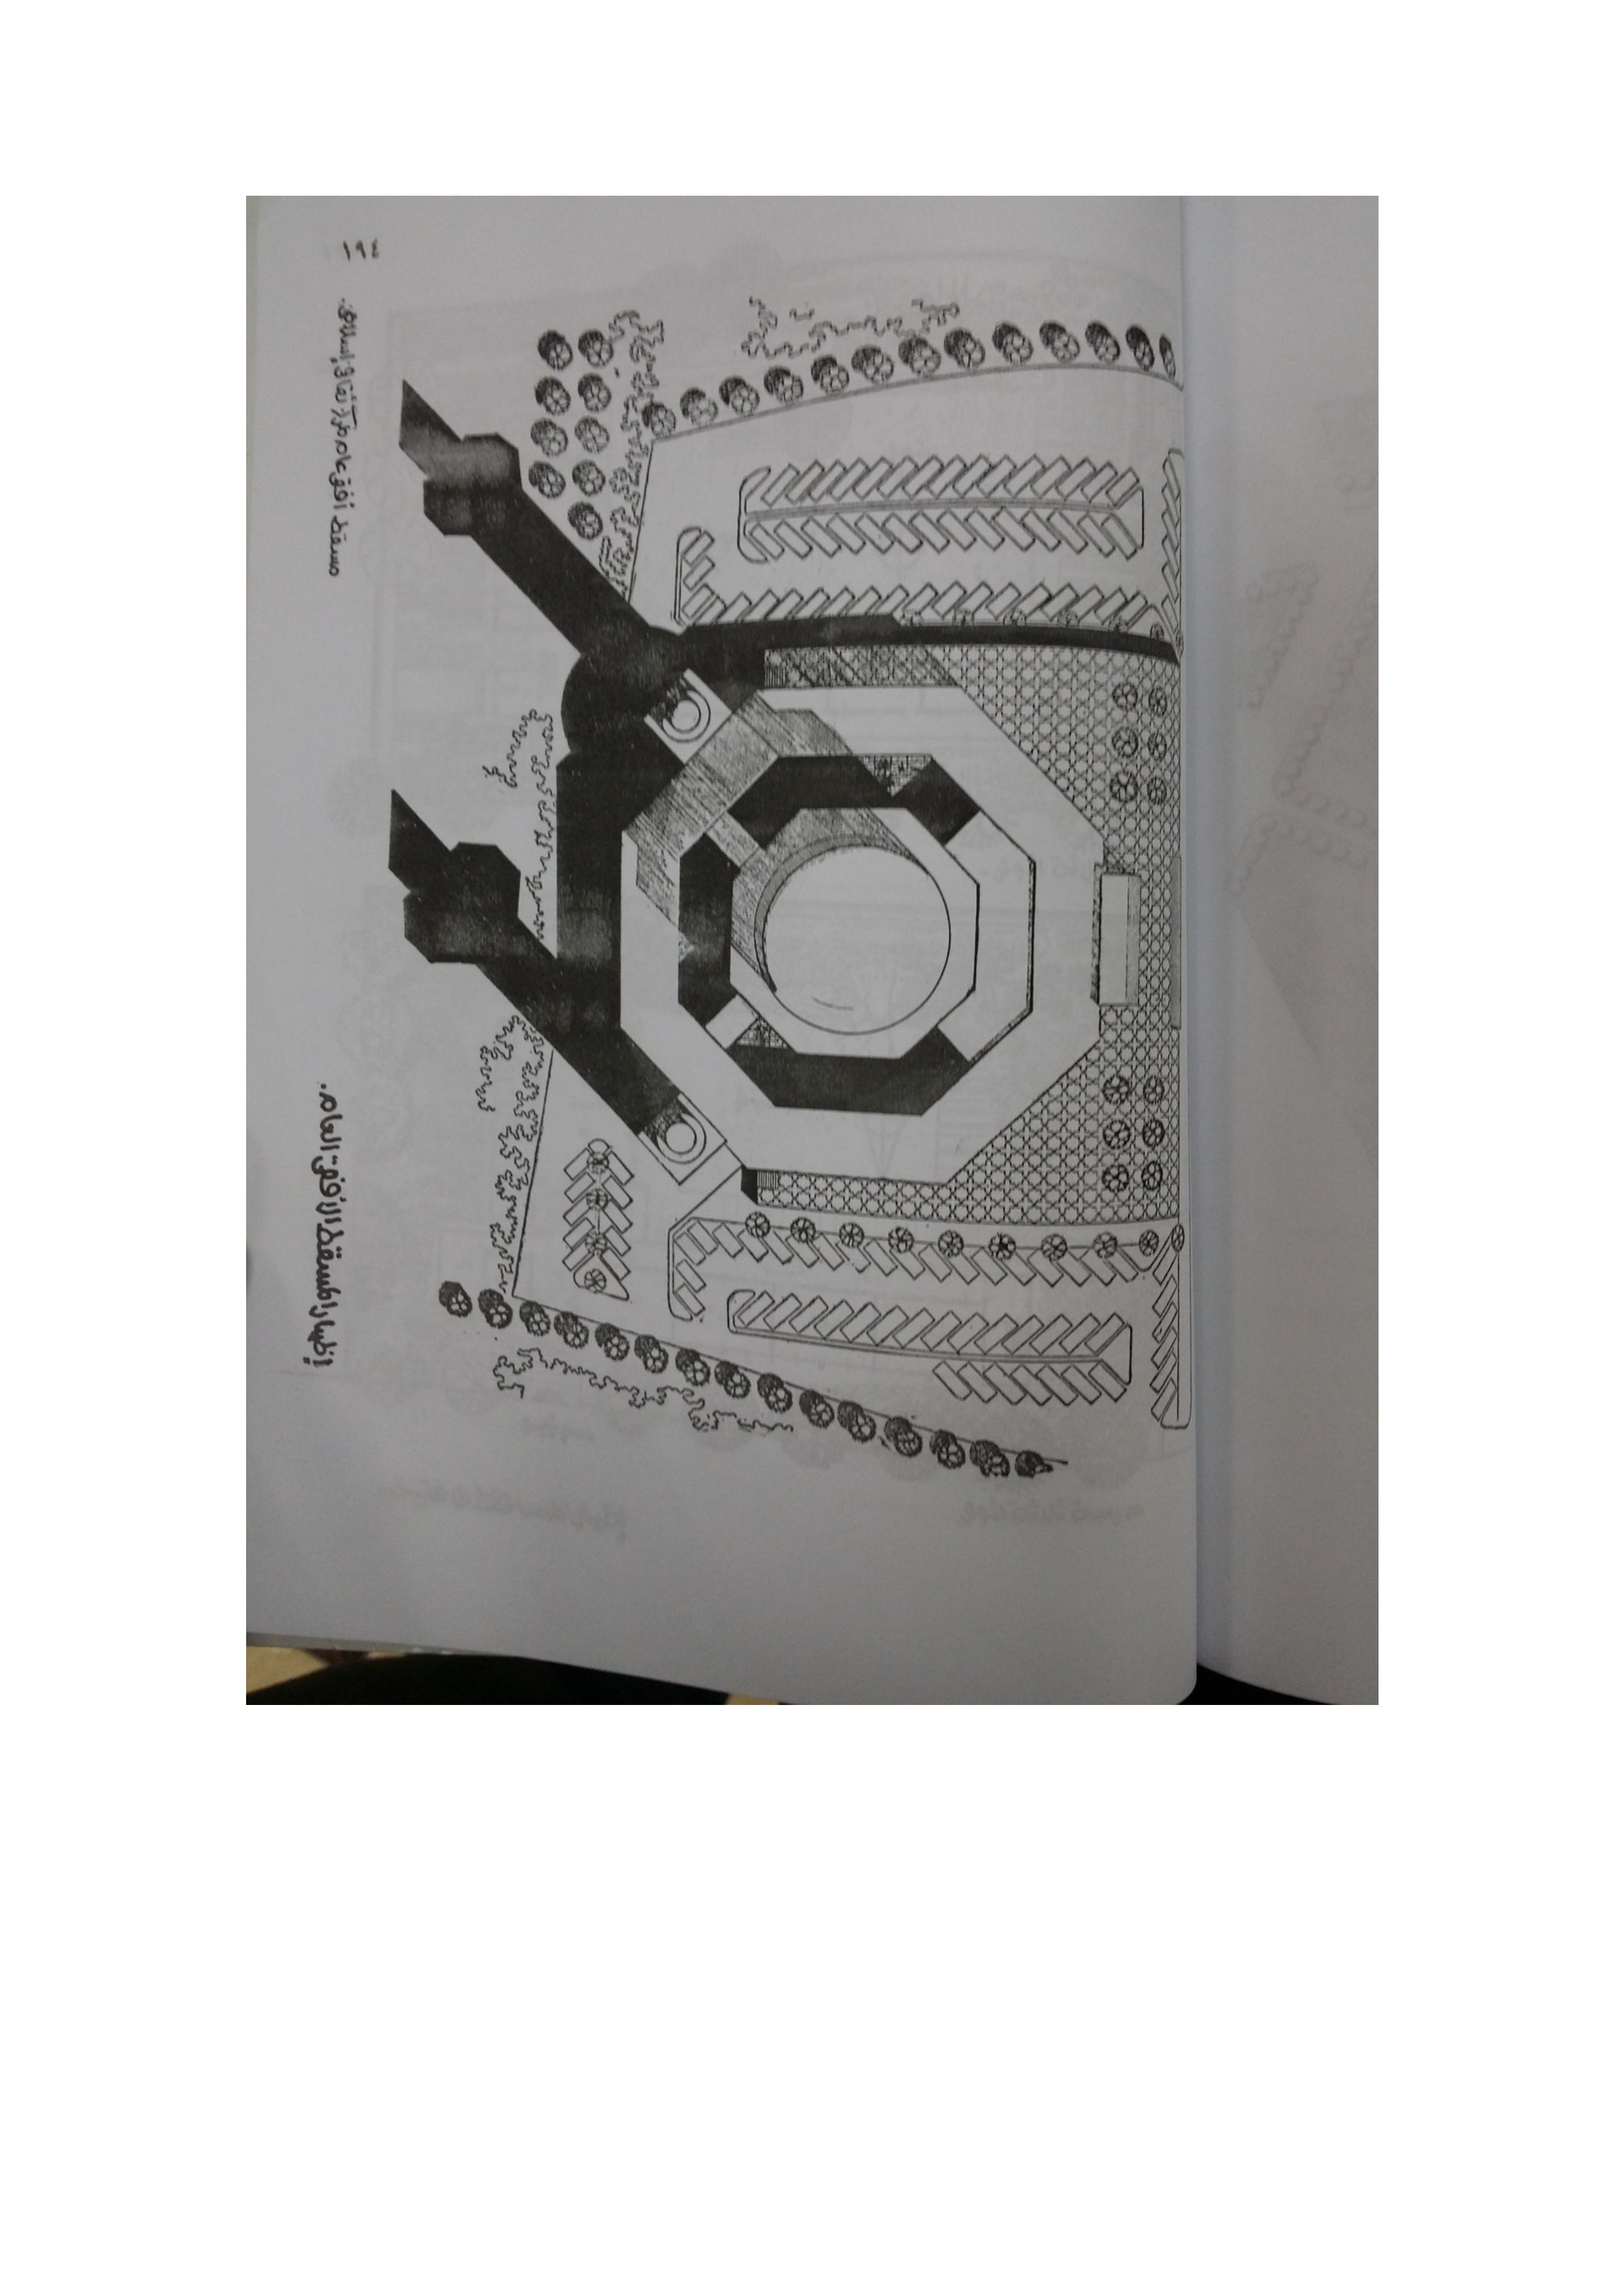 إظهار المسقط الأفقى العام.
مسقط أفقى عام مركز ثقافى إسلامى.
١٩٤